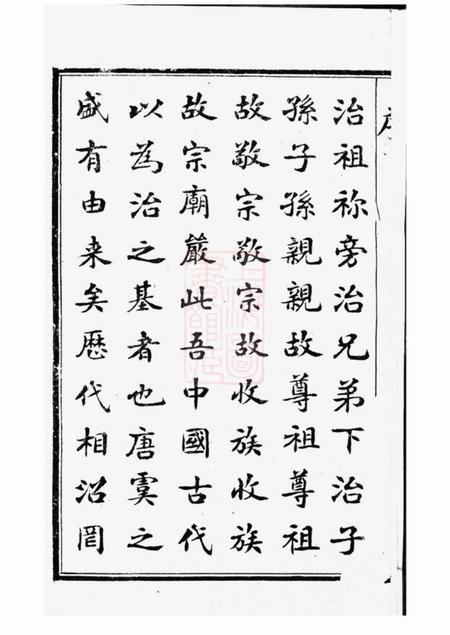 治祖祢旁治兄弟下治子
孫子孫親親故尊祖尊祖
故敬宗敬宗故收族收族
故宗廟嚴此吾中國古代
以為治之基者也唐虞之
盛有由来矣歷代相沿罔